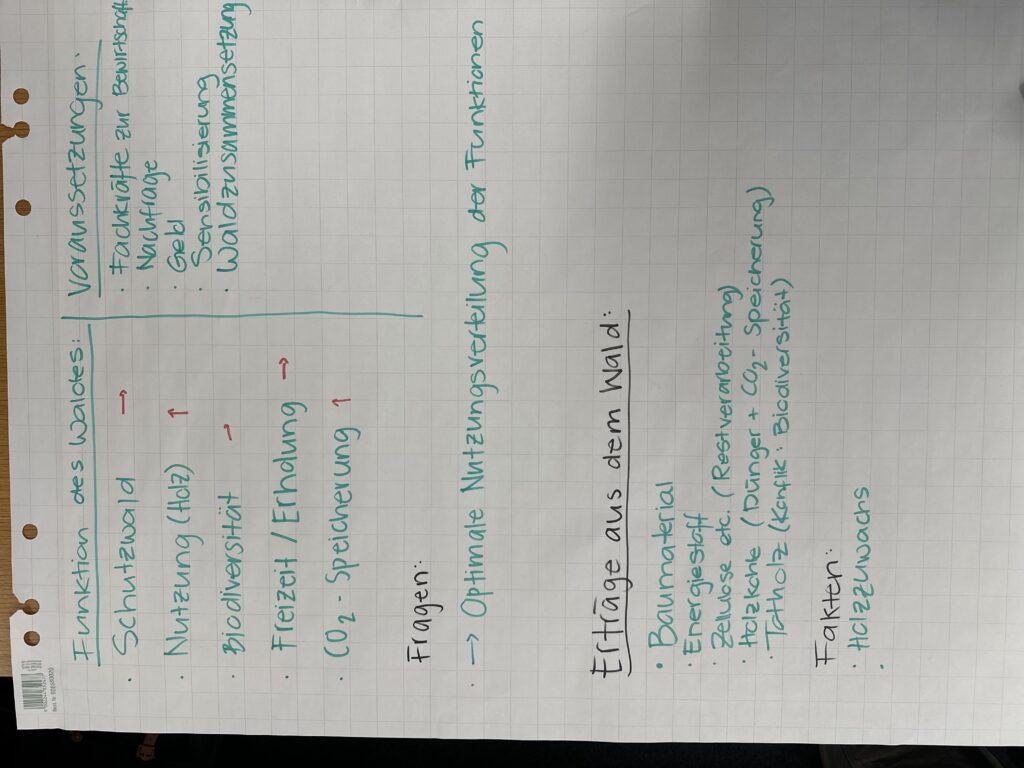 Funktion des Waldes:
· Schutzwald →
· Nutzung (Holz) ↑
· Biodiversität →
· Freizeit / Erholung →
· CO₂ - Speicherung ↑
Voraussetzungen:
· Fachkräfte zur
· Nachfrage
· Geld
· Sensibilisierung
· Waldzusammensetzung
Fragen:
· → Optimale Nutzungsverteilung der Funktionen
Erträge aus dem Wald:
· Baumaterial
· Energiestoff
· Zellulose etc. (Restverarbeitung)
· Holzkohle (Dünger + CO₂ - Speicherung)
· Totholz (Konflik: Biodiversität)
Fakten:
· Holzzuwachs
·